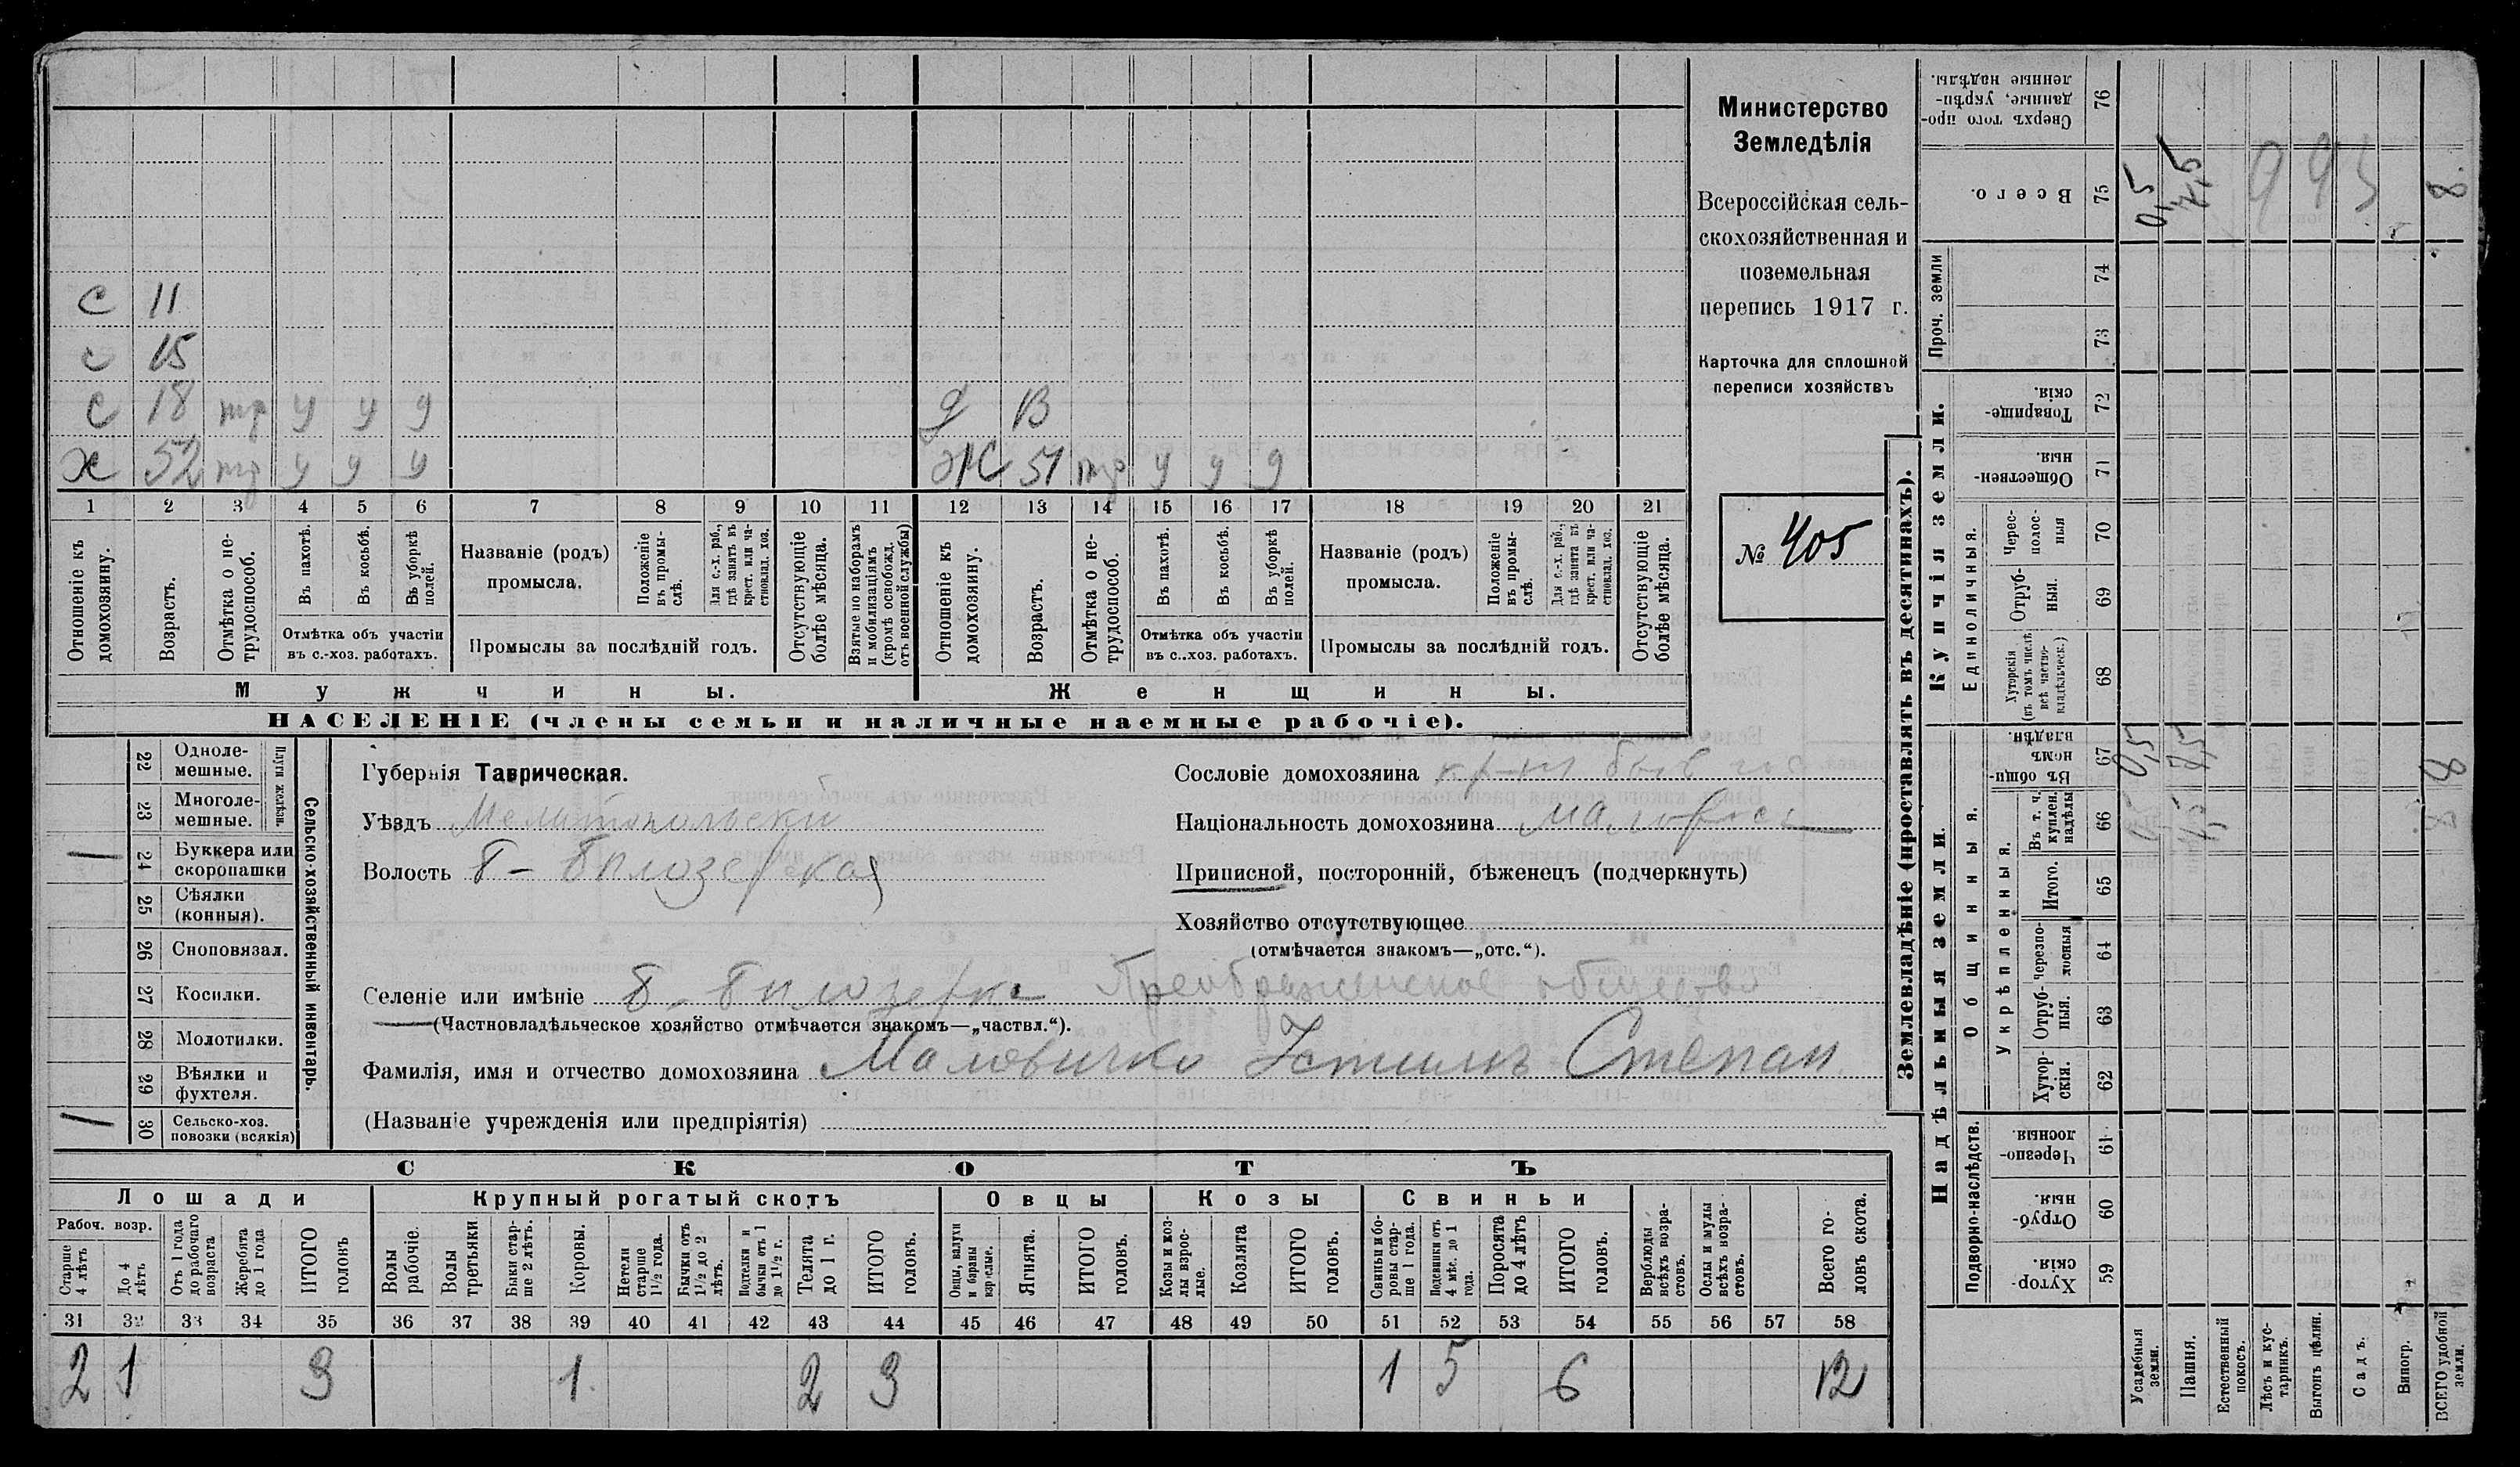 Министерство
Земледѣлія
Всероссійская сель-
скохозяйственная и
поземельная
перепись 1917 г.
Карточка для сплошной
переписи хозяйствъ
№ 405
С 11
с 15
С 18 тр у у у
Х 52 тр у у у
д 13
Ж 51 тр у у у
1 2 3 4 5 6 7 8 9 10 11 12 13 14 15 16 17 18 19 20 21
Отношеніе къ домохозяину.
Возрастъ.
Отмѣтка о не-трудоспособ.
Въ пахотѣ.
Въ косьбѣ.
Въ уборкѣ полей.
Отмѣтка объ участіи
въ с.-хоз. работахъ.
Названіе (родъ)
промысла.
Положеніе въ промы-слѣ.
Для с.-х. раб., гдѣ занятъ въ крест. или ча-стновлад. хоз.
Промыслы за послѣдній годъ.
Отсутствующіе болѣе мѣсяца.
Взятые по наборамъ и мобилизаціямъ (кромѣ освобожд. отъ военной службы)
Отношеніе къ домохозяину.
Возрастъ.
Отмѣтка о не-трудоспособ.
Въ пахотѣ.
Въ косьбѣ.
Въ уборкѣ полей.
Отмѣтка объ участіи
въ с..хоз. работахъ.
Названіе (родъ)
промысла.
Положеніе въ промы-слѣ.
Для с.-х. раб., гдѣ занята въ крест. или ча-стновлад. хоз.
Промыслы за послѣдній годъ.
Отсутствующіе болѣе мѣсяца.
Мужчины.
Женщины.
НАСЕЛЕНІЕ (члены семьи и наличные наемные рабочіе).
22 Одноле-мешные.
Плуги желѣзн.
23 Многоле-мешные.
24 Буккера или скоропашки
25 Сѣялки (конныя).
26 Сноповязал.
27 Косилки.
28 Молотилки.
29 Вѣялки и фухтеля.
30 Сельско-хоз. повозки (всякія)
Сельско-хозяйственный инвентарь.
Губернія Таврическая.
Уѣздъ Мелитопольскій
Волость Б-Бѣлозерская
Сословіе домохозяина
Національность домохозяина малоросъ
Приписной, посторонній, бѣженецъ (подчеркнуть)
Хозяйство отсутствующее
(отмѣчается знакомъ—„отс.“).
Селеніе или имѣніе Б-Бѣлозерка Преображенское общество
(Частновладѣльческое хозяйство отмѣчается знакомъ—„частвл.“).
Фамилія, имя и отчество домохозяина Маловичко Устимъ Степан
(Названіе учрежденія или предпріятія)
СКОТЪ
Лошади
Крупный рогатый скотъ
Овцы
Козы
Свиньи
Рабоч. возр.
Старше 4 лѣтъ
До 4 лѣтъ
Отъ 1 года до рабочаго возраста
Жеребята до 1 года
ИТОГО головъ
Волы рабочіе.
Волы третьяки
Быки стар-ше 2 лѣтъ.
Коровы.
Нетели старше 1½ года.
Бычки отъ 1½ до 2 лѣтъ.
Подтелки и бычки отъ 1 до 1½ г.
Телята до 1 г.
ИТОГО головъ.
Овцы, валухи и бараны взрослые.
Ягнята.
ИТОГО головъ.
Козы и коз-лы взрос-лые.
Козлята
ИТОГО головъ.
Свиньи и бо-ровы стар-ше 1 года.
Подсвинки отъ 4 мѣс. до 1 года.
Поросята до 4 лѣтъ
ИТОГО головъ.
Верблюды всѣхъ возра-стовъ.
Ослы и мулы всѣхъ возра-стовъ.
Всего го-ловъ скота.
31 32 33 34 35 36 37 38 39 40 41 42 43 44 45 46 47 48 49 50 51 52 53 54 55 56 57 58
2 1 3 1 2 3 1 5 6 12
Землевладѣніе (проставлять въ десятинахъ).
Купчія земли.
Надѣльныя земли.
Сверхъ того про-данные, укрѣп-ленные надѣлы. 76
Всего. 75
0,5 7,5 8.
Проч. земли
74
73
Товарище-скія. 72
Обществен-ныя. 71
Единоличныя.
Черес-полос-ныя 70
Отруб-ныя. 69
Хуторскія (въ томъ числѣ всѣ частно-владѣльческ.) 68
Общинныя.
Въ общи-номъ владѣн. 67
0,5 7,5 8
Укрѣпленныя.
Въ т. ч. куплен. надѣлы 66
Итого. 65
Черезпо-лосныя 64
Отруб-ныя. 63
Хутор-скія. 62
Подворно-наслѣдств.
Черезпо-лосныя. 61
Отруб-ныя. 60
Хутор-скія. 59
Усадебныя земли.
Пашня.
Естественный покосъ.
Лѣсъ и кус-тарникъ.
Выгонъ цѣлин.
Садъ.
Виногр.
ВСЕГО удобной земли.